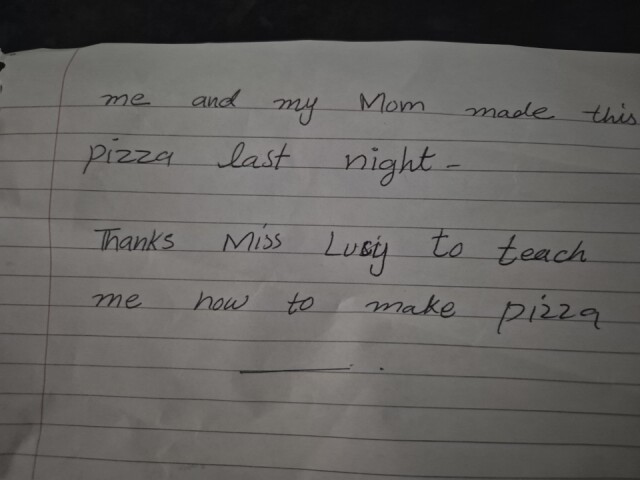 me and my Mom made this
pizza last night -
Thanks Miss Lucy to teach
me how to make pizza